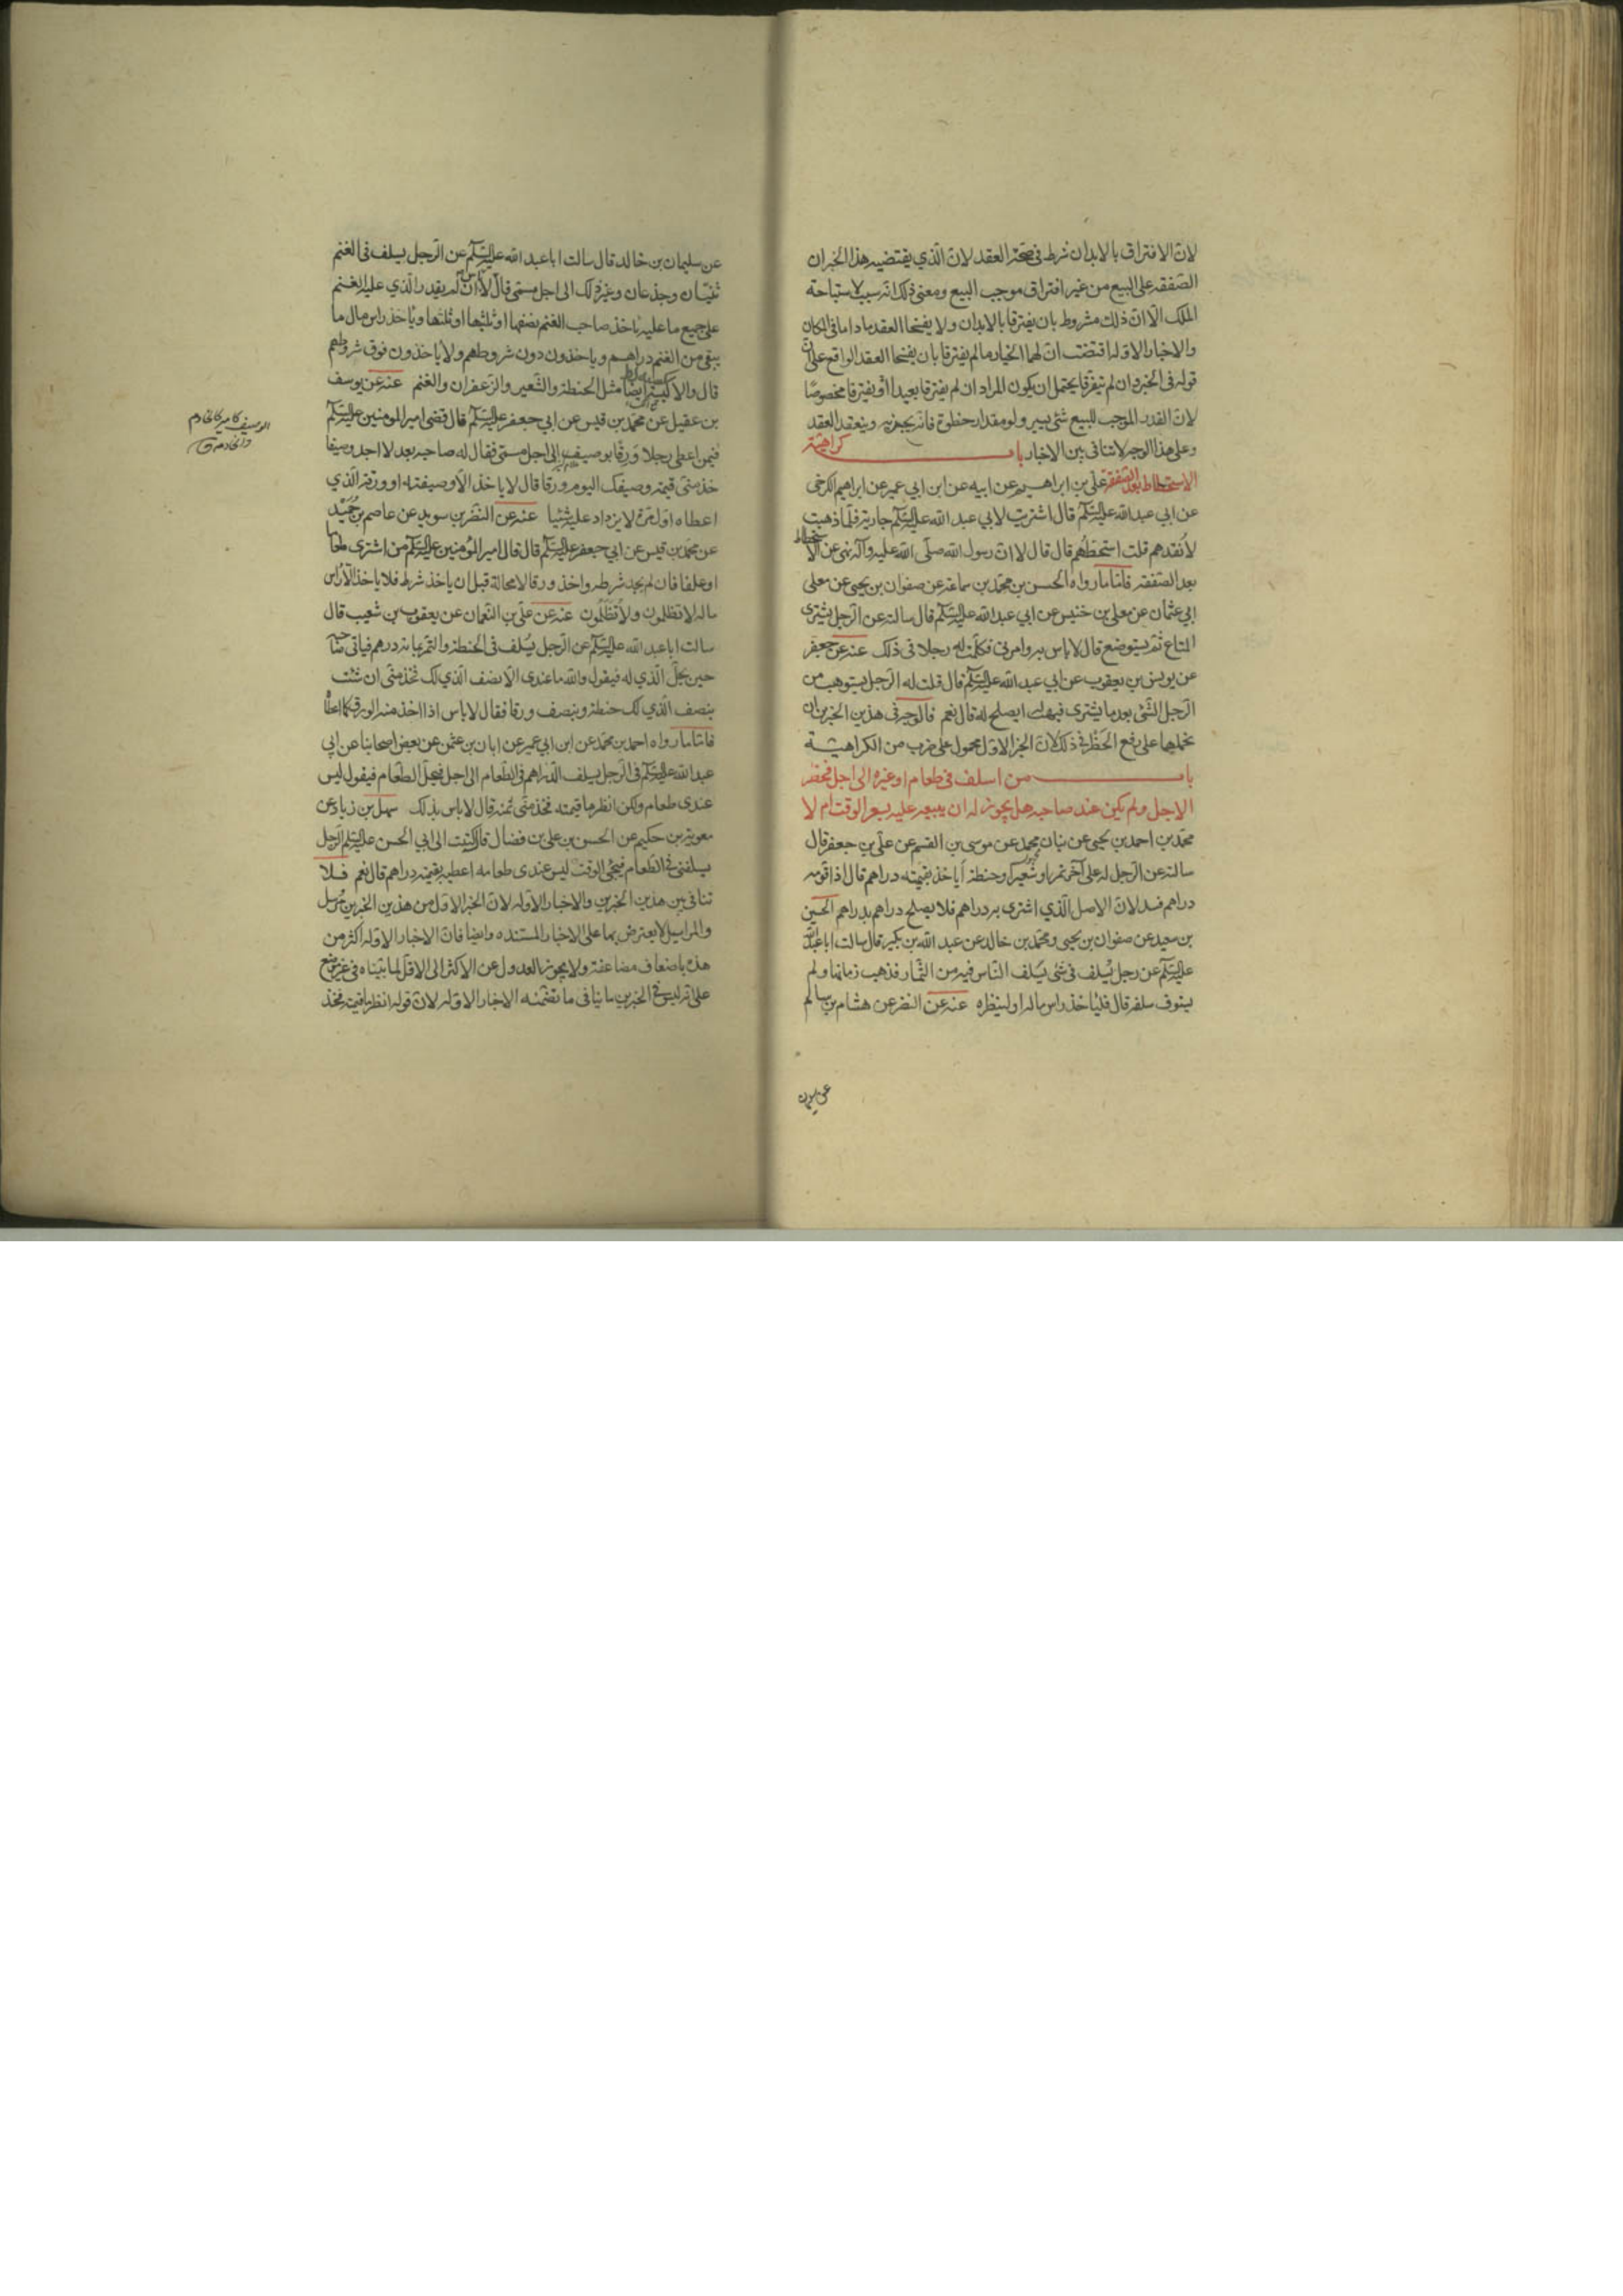 لان الافتراق بالابدان شرط في صحة العقد لان الذي يقتضيه هذا الخبر ان
الصفقة على البيع من غير افتراق موجب البيع ومعنى ذلك انه سبب لاستباحة
الملك الا ان ذلك مشروط بان يفترقا بالابدان ولا يفسخا العقد ما داما في المكان
والاخبار الاولة اقتضت ان لهما الخيار ما لم يفترقا بان يفسخا العقد الواقع على ان
قوله في الخبر وان لم يفترقا يحتمل ان يكون المراد ان لم يفترقا بعيدا او يفترقا مخصوصا
لان القدر الموجب للبيع شئ يسير ولو مقدار خطوة فانه يجوز به وينعقد العقد
وعلى هذا الوجه لا تنافي بين الاخبار باب كراهية
الاستحطاط بعد الصفقة علي بن ابراهيم عن ابيه عن ابن ابي عمير عن ابراهيم الكرخي
عن ابي عبد الله عليه السلام قال اشتريت لابي عبد الله عليه السلام جارية فلما ذهبت
لأنقدهم قلت استحطهم قال قال لا ان رسول الله صلى الله عليه وآله نهى عن الاستحطاط
بعد الصفقة فاما ما رواه الحسن بن محمد بن سماعة عن صفوان بن يحيى عن معلى
ابي عثمان عن معلى بن خنيس عن ابي عبد الله عليه السلام قال سالته عن الرجل يشترى
المتاع ثم يستوضع قال لا باس به وامرني فكلمت له رجلا في ذلك عنه عن جعفر
عن يونس بن يعقوب عن ابي عبد الله عليه السلام قال قلت له الرجل يستوهب من
الرجل الشئ بعد ما يشترى فيهب له ايصلح له قال نعم فالوجه في هذين الخبرين ان
نحملهما على رفع الحظر في ذلك لان الخبر الاول محمول على ضرب من الكراهيـة
باب من اسلف في طعام او غيره الى اجل فحضر
الاجل ولم يكن عند صاحبه هل يجوز له ان يبيعه عليه بسعر الوقت ام لا
محمد بن احمد بن يحيى عن بنان بن محمد عن موسى بن القسم عن علي بن جعفر قال
سالته عن الرجل له على آخر تمر او شعير او حنطة أياخذ بقيمته دراهم قال اذا قومه
دراهم فسد لان الاصل الذي اشترى به دراهم فلا يصلح دراهم بدراهم الحسين
بن سعيد عن صفوان بن يحيى ومحمد بن خالد عن عبد الله بن بكير قال سالت ابا عبد الله
عليه السلام عن رجل يُسلف في شئ يسلف الناس فيه من الثمار فذهب زمانها ولم
يستوف سلفه قال فليأخذ راس ماله او لينظره عنه عن النضر عن هشام بن سالم
عن سليمان
عن سليمان بن خالد قال سالت ابا عبد الله عليه السلام عن الرجل يسلف في الغنم
ثنيان وجذعان وغير ذلك الى اجل مسمى قال لا باس ان لم يقدر الذي عليه الغنـم
على جميع ما عليه ياخذ صاحب الغنم نصفها او ثلثها او ثلثيها وياخذ راس مال ما
بقى من الغنم دراهـم وياخذون دون شروطهم ولا ياخذون فوق شروطهم
قال والاكسية ايضا مثل الحنطة والشعير والزعفران والغنم عنه عن يوسف
بن عقيل عن محمد بن قيس عن ابي جعفر عليه السلام قال قضى امير المومنين عليه السلام
فيمن اعطى رجلا وَرِقًا بوصيف الى اجل مسمى فقال له صاحبه بعد لا اجد وصيفا
خذ مني قيمة وصيفك اليوم ورقا قال لا ياخذ الا وصيفته او ورقه الذي
اعطاه اول مرة لا يزداد عليه شئيا عنه عن النضر بن سويد عن عاصم بن حُمَيْد
عن محمد بن قيس عن ابي جعفر عليه السلام قال قال امير المؤمنين عليه السلام من اشترى طعاما
او علفا فان لم يجد شرطه واخذ ورقا لا محالة قبل ان ياخذ شرطه فلا ياخذ الا راس
ماله لا تظلمون ولا تُظلَمون عنه عن علي بن النعمان عن يعقوب بن شعيب قال
سالت ابا عبد الله عليه السلام عن الرجل يُسلف في الحنطة والتمر بمائة درهم فياتي صاحبه
حين يحلّ الذي له فيقول والله ما عندى الا نصف الذي لك فخذ مني ان شئت
بنصف الذي لك حنطة وبنصف ورقا فقال لا باس اذا اخذ منه الورق كما اعطاه
فاما ما رواه احمد بن محمد عن ابن ابي عمير عن ابان بن عثمن عن بعض اصحابنا عن ابي
عبد الله عليه السلام في الرجل يسلف الدراهم في الطعام الى اجل فيحل الطعام فيقول ليس
عندى طعام ولكن انظر ما قيمته فخذ مني ثمنه قال لا باس بذلك سهل بن زياد عن
معوية بن حكيم عن الحسن بن علي بن فضال قال كتبت الى ابي الحسن عليه السلم الرجل
يسلفني في الطعام فيجئ الوقت ليس عندى طعامه اعطيه بقيمته دراهم قال نعم فـلا
تنافي بين هذين الخبرين والاخبار الاولة لان الخبر الاول من هذين الخبرين مُرسل
والمراسيل لا يعترض بها على الاخبار المسنده وايضا فان الاخبار الاولة اكثر من
هذه باضعاف مضاعفة ولا يجوز العدول عن الاكثر الى الاقل لما بيناه في غير موضع
على انه ليس في الخبرين ما ينافي ما تضمنته الاخبار الاولة لان قوله انظر ما قيمته فخذ
الوصيف كامير كالخادم
والخادمة ق